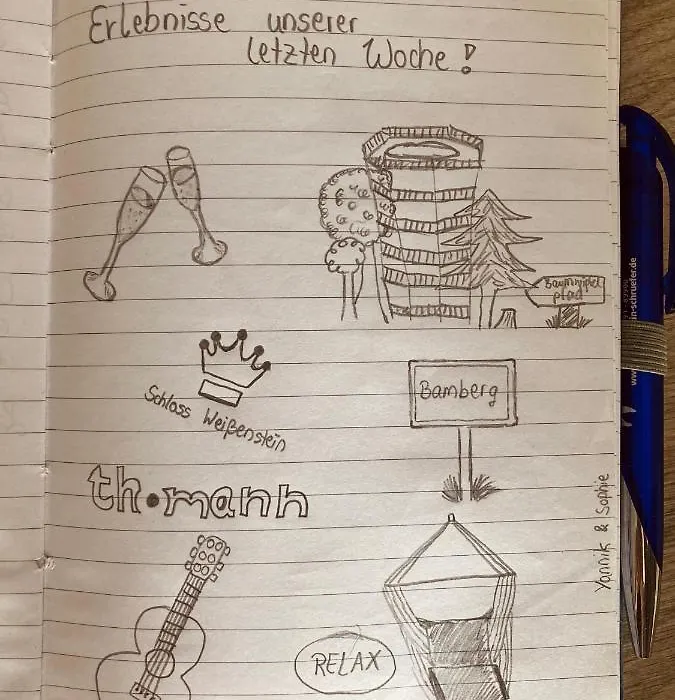 Erlebnisse unserer
letzten Woche!
Baumwipfel
pfad
Schloss Weißenstein
Bamberg
th•mann
Yannik & Sophie
RELAX
in-schruefer.de